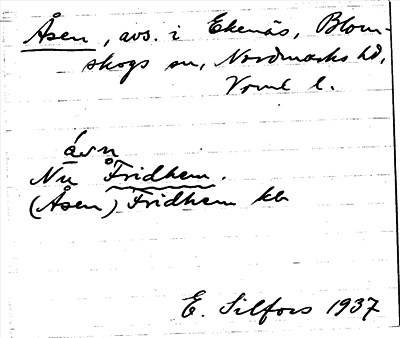 Åsen, avs. i Ekenäs, Blom-
skogs sn, Nordmarks hd,
Vrml l.
åsn
Nu Fridhem.
(Åsen) Fridhem kb
E. Silfors 1937